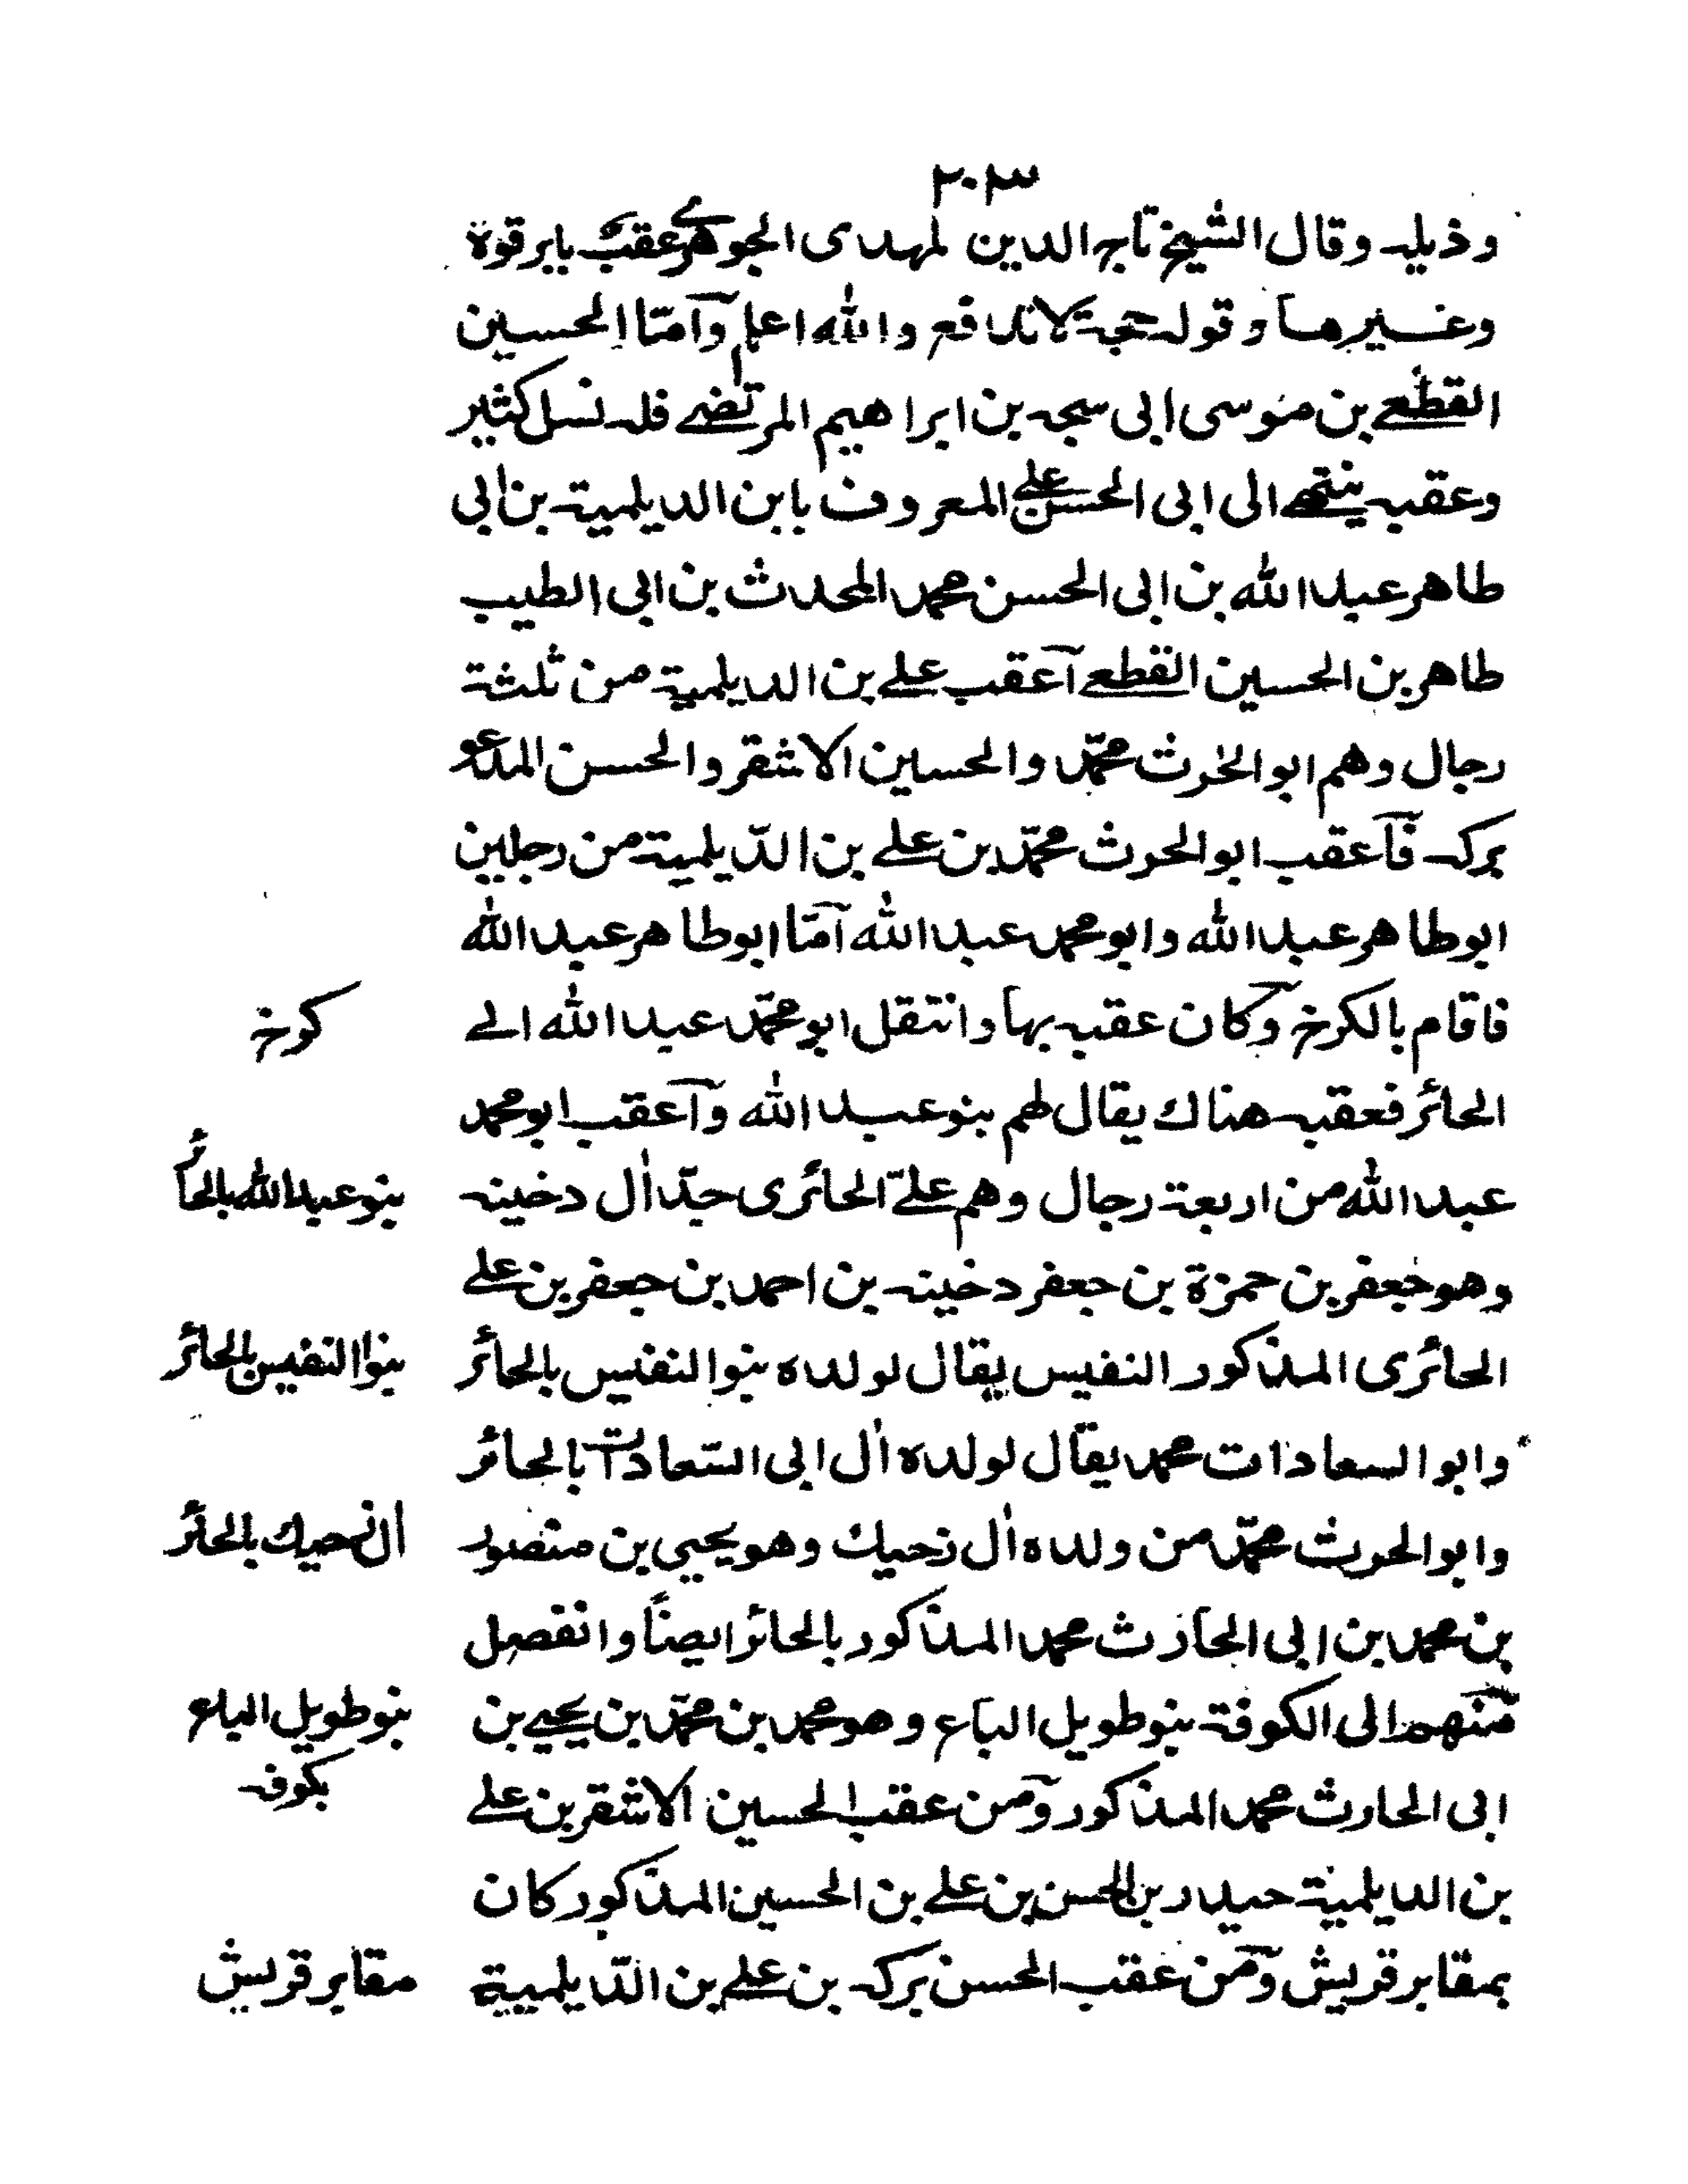 ٢٠٣
وذيله وقال الشيخ تاج الدين لمهدى الجوهرى عقب بابرقوة
وغيرها وقوله حجة لا تدافع والله اعلم وآمّا الحسين
القطعى بن موسى ابى سبحه بن ابراهيم المرتضى فله نسل كثير
وعقبه ينتهى الى ابى الحسن على المعروف بابن الديلمية بن ابى
طاهر عبد الله بن ابى الحسن محمد المحدث بن ابى الطيب
طاهر بن الحسين القطعى آعقب على بن الديلمية من ثلثة
رجال وهم ابو الحرث محمّد والحسين الاشقر والحسن المدعو
بركه فآعقب ابو الحرث محمّد بن على بن الدّيلمية من رجلين
ابو طاهر عبد الله وابو محمد عبد الله آمّا ابو طاهر عبد الله
فاقام بالكرخ وكان عقبه بها وانتقل ابو محمّد عبد الله الى
كرخ
الحائر فعقبه هناك يقال لهم بنو عبد الله وآعقب ابو محمد
عبد الله من اربعة رجال وهم علىّ الحائرى جدّ اٰل دخينه
بنو عبد الله بالحائر
وهو جعفر بن حمزة بن جعفر دخينه بن احمد بن جعفر بن على
الحائرى المذكور النفيس يقال لولده بنوا النفيس بالحائر
بنوا النفيس بالحائر
وابو السعادات محمد يقال لولده اٰل ابى السّعادات بالحائر
وابو الحرث محمّد من ولده اٰل زحيك وهو يحيى بن منصور
اٰل زحيك بالحائر
بن محمد بن ابى الحارث محمد المذكور بالحائر ايضاً وانفصل
منهم الى الكوفة بنو طويل الباع وهو محمد بن محمّد بن يحيى بن
بنو طويل الباع
بكوفه
ابى الحارث محمد المذكور ومن عقب الحسين الاشقر بن على
بن الديلمية حيدر بن الحسن بن على بن الحسين المذكور كان
بمقابر قريش ومن عقب الحسن بركه بن على بن الدّيلمية
مقابر قريش